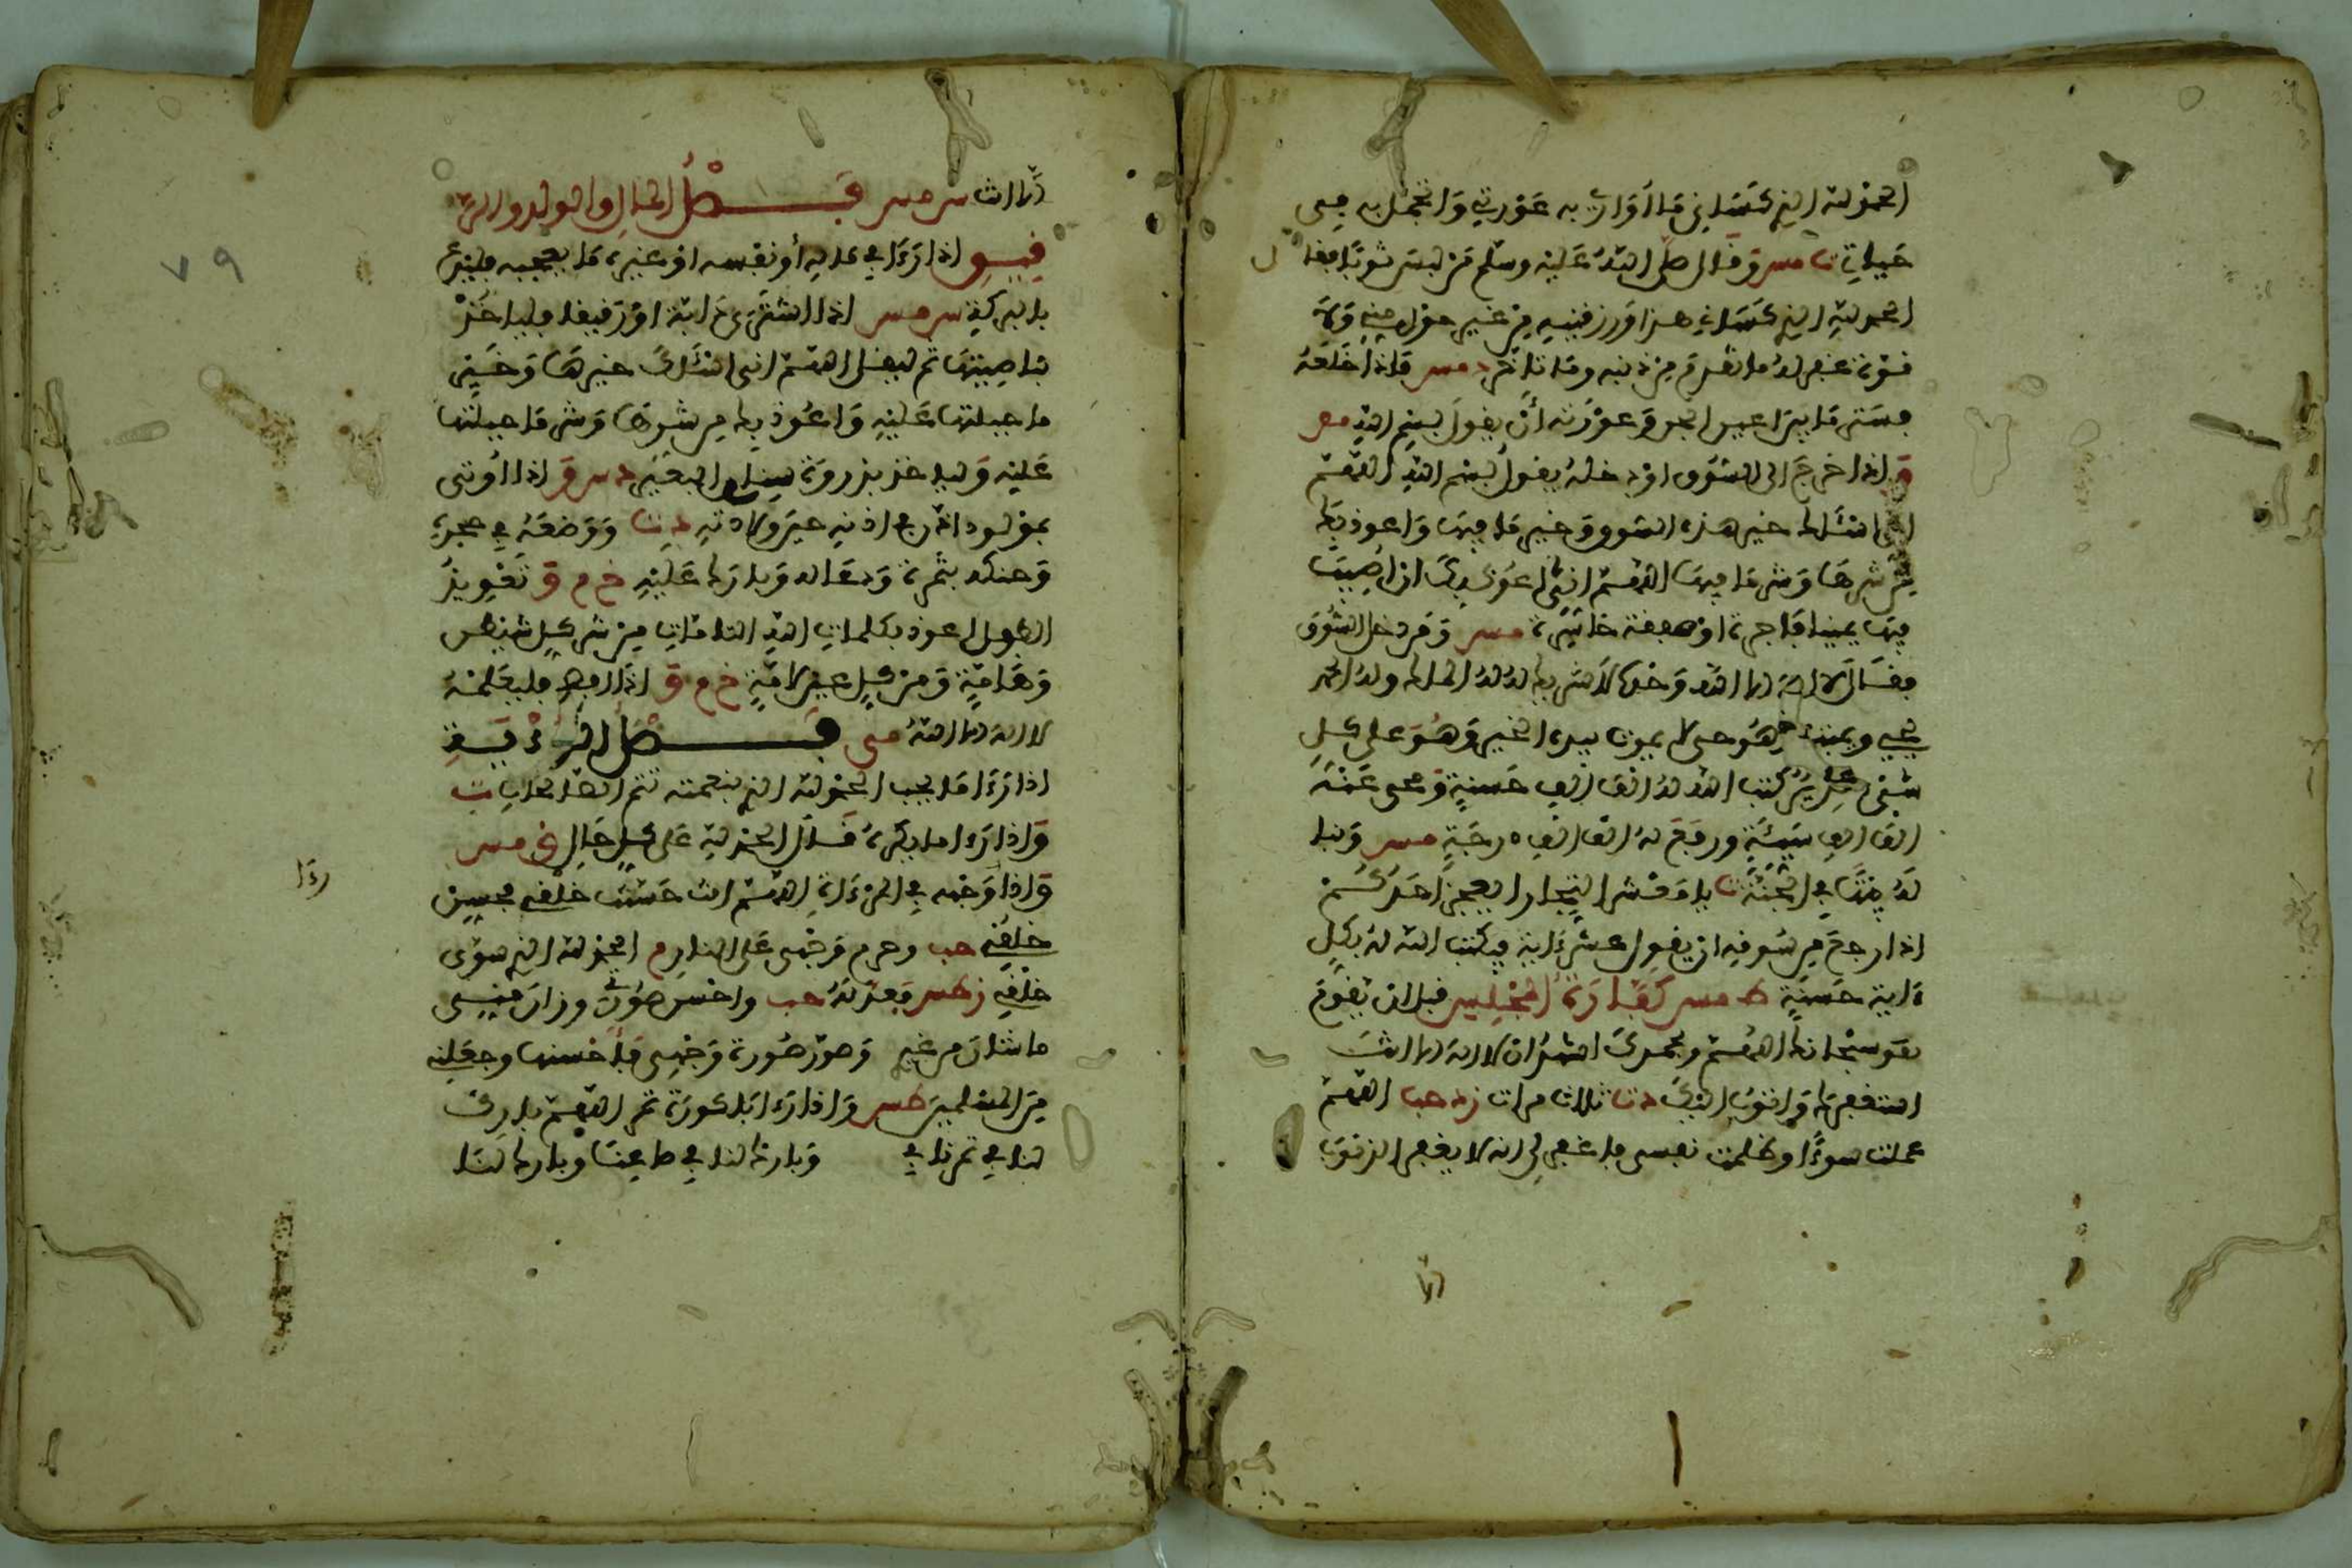 الحمد لله الذي كساني ما أواري به عورتي وأتجمل به في
حياتي ت مس ق وقال صلى الله عليه وسلم من لبس ثوبا فقال
الحمد لله الذي كساني هذا ورزقنيه من غير حول مني ولا
قوة غفر له ما تقدم من ذنبه وما تأخر د مس فإذا خلعه
فستر ما بين أعين الجن وعورته أن يقول بسم الله مص
ق إذا خرج إلى السوق أو دخله يقول بسم الله اللهم
إني أسألك خير هذه السوق وخير ما فيها وأعوذ بك
من شرها وشر ما فيها اللهم إني أعوذ بك أن أصيب
فيها يمينا فاجرة أو صفقة خاسرة مس ومن دخل السوق
فقال لا إله إلا الله وحده لا شريك له له الملك وله الحمد
يحيي ويميت وهو حي لا يموت بيده الخير وهو على كل
شيء قدير كتب الله له ألف ألف حسنة ومحى عنه
ألف ألف سيئة ورفع له ألف ألف درجة مس وبنا
له بيتا في الجنة ت يا معشر التجار أيعجز أحدكم
إذا رجع من سوقه أن يقول عشر ءاية فيكتب الله له بكل
ءاية حسنة ط مس كفارة المجلس قبل أن يقوم
يقو سبحانك اللهم وبحمدك أشهد أن لا إله إلا أنت
أستغفرك وأتوب إليك د ت ثلاث مرات د حب اللهم
عملت سوءا وظلمت نفسي فاغفر لي إنه لا يغفر الذنوب
إلا
إلا أنت س مس فصل المال والولد والر
قيق إذا رءا في ماله أو نفسه أو غيره ما يعجبه فليدع
بالبركة س مس إذا اشترى دابة أو رقيقا فلياخذ
بناصيتها ثم ليقل اللهم إني أسألك خيرها وخير
ما جبلتها عليه وأعوذ بك من شرها وشر ما جبلتها
عليه ولياخذ بذروة سنام البعير د س ق إذا أوتي
بمولود اذن في أذنه حين ولادته د ت ووضعه في حجره
وحنكه بتمرة ودعا له وبارك عليه خ م ق تعويذ
الطفل أعوذ بكلمات الله التامات من شر كل شيطن
وهامة ومن كل عين لامة خ م ق إذا أفصح فليعلمه
لا إله إلا الله مى فصل الرؤية
إذا رءا ما يحب الحمد لله الذي بنعمته تتم الصالحات ت
وإذا رءا ما يكره قال الحمد لله على كل حال ق مس
وإذا وجهه في المرءاة اللهم أنت حسنت خلقي فحسن
رءا
خلقي حب وحرم وجهي على النار م الحمد لله الذي سوى
خلقي ز طس فعدله حب وأحسن صورتي وزان مني
ما شان من غيري وصور صورة وجهي فأحسنها وجعلني
من المسلمين طس وإذا رءا باكورة ثمر اللهم بارك
لنا في ثمرنا في وبارك لنا في صاعنا وبارك لنا
٧٩